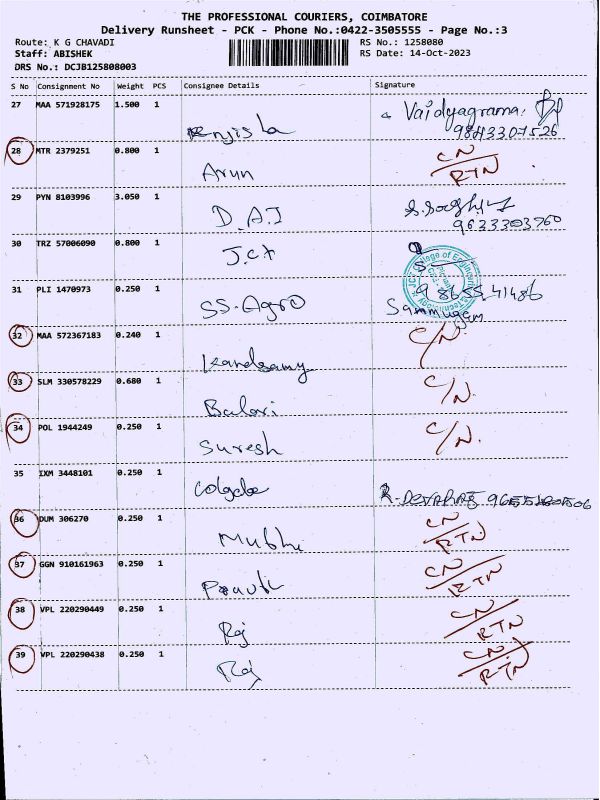 THE PROFESSIONAL COURIERS, COIMBATORE
Delivery Runsheet - PCK - Phone No.:0422-3505555 - Page No.:3
Route: K G CHAVADI
RS No.: 1258080
Staff: ABISHEK
RS Date: 14-Oct-2023
DRS No.: DCJB125808003
S No Consignment No Weight PCS Consignee Details Signature
27 MAA 571928175 1.500 1 Vaidyagrama
9843307526
28 MTR 2379251 0.800 1 Arun CN/RTN
29 PYN 8103996 3.050 1 D.A.J
9633303760
30 TRZ 57006090 0.800 1 J.C.T
31 PLI 1470973 0.250 1 SS.Agro 9865541486
Sammugam
32 MAA 572367183 0.240 1 Kandsamy C/N.
33 SLM 330578229 0.680 1 Balavi C/N.
34 POL 1944249 0.250 1 Suresh C/N.
35 IXM 3448101 0.250 1 Colgate R-DEVARAJ
36 DUM 306270 0.250 1 CN/RTN
37 GGN 910161963 0.250 1 CN/RTN
38 VPL 220290449 0.250 1 Raj CN/RTN
39 VPL 220290438 0.250 1 Raj CN/RTN